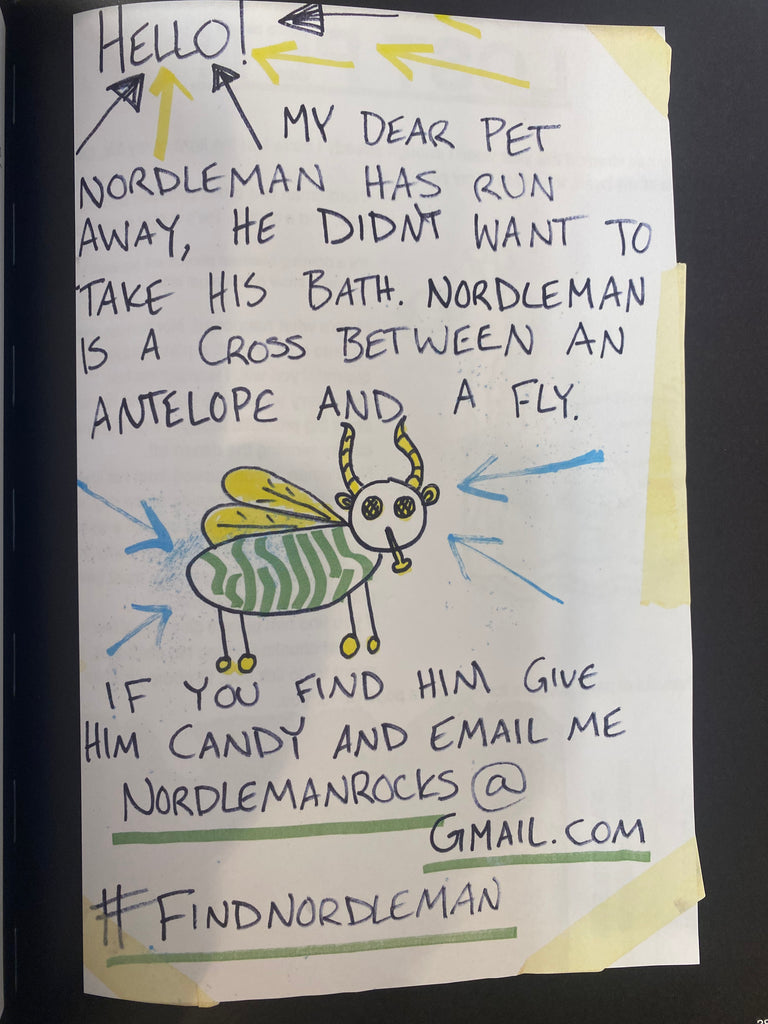 HELLO!
MY DEAR PET
NORDLEMAN HAS RUN
AWAY, HE DIDN'T WANT TO
TAKE HIS BATH. NORDLEMAN
IS A CROSS BETWEEN AN
ANTELOPE AND A FLY.
IF YOU FIND HIM GIVE
HIM CANDY AND EMAIL ME
NORDLEMANROCKS@
GMAIL.COM
#FINDNORDLEMAN